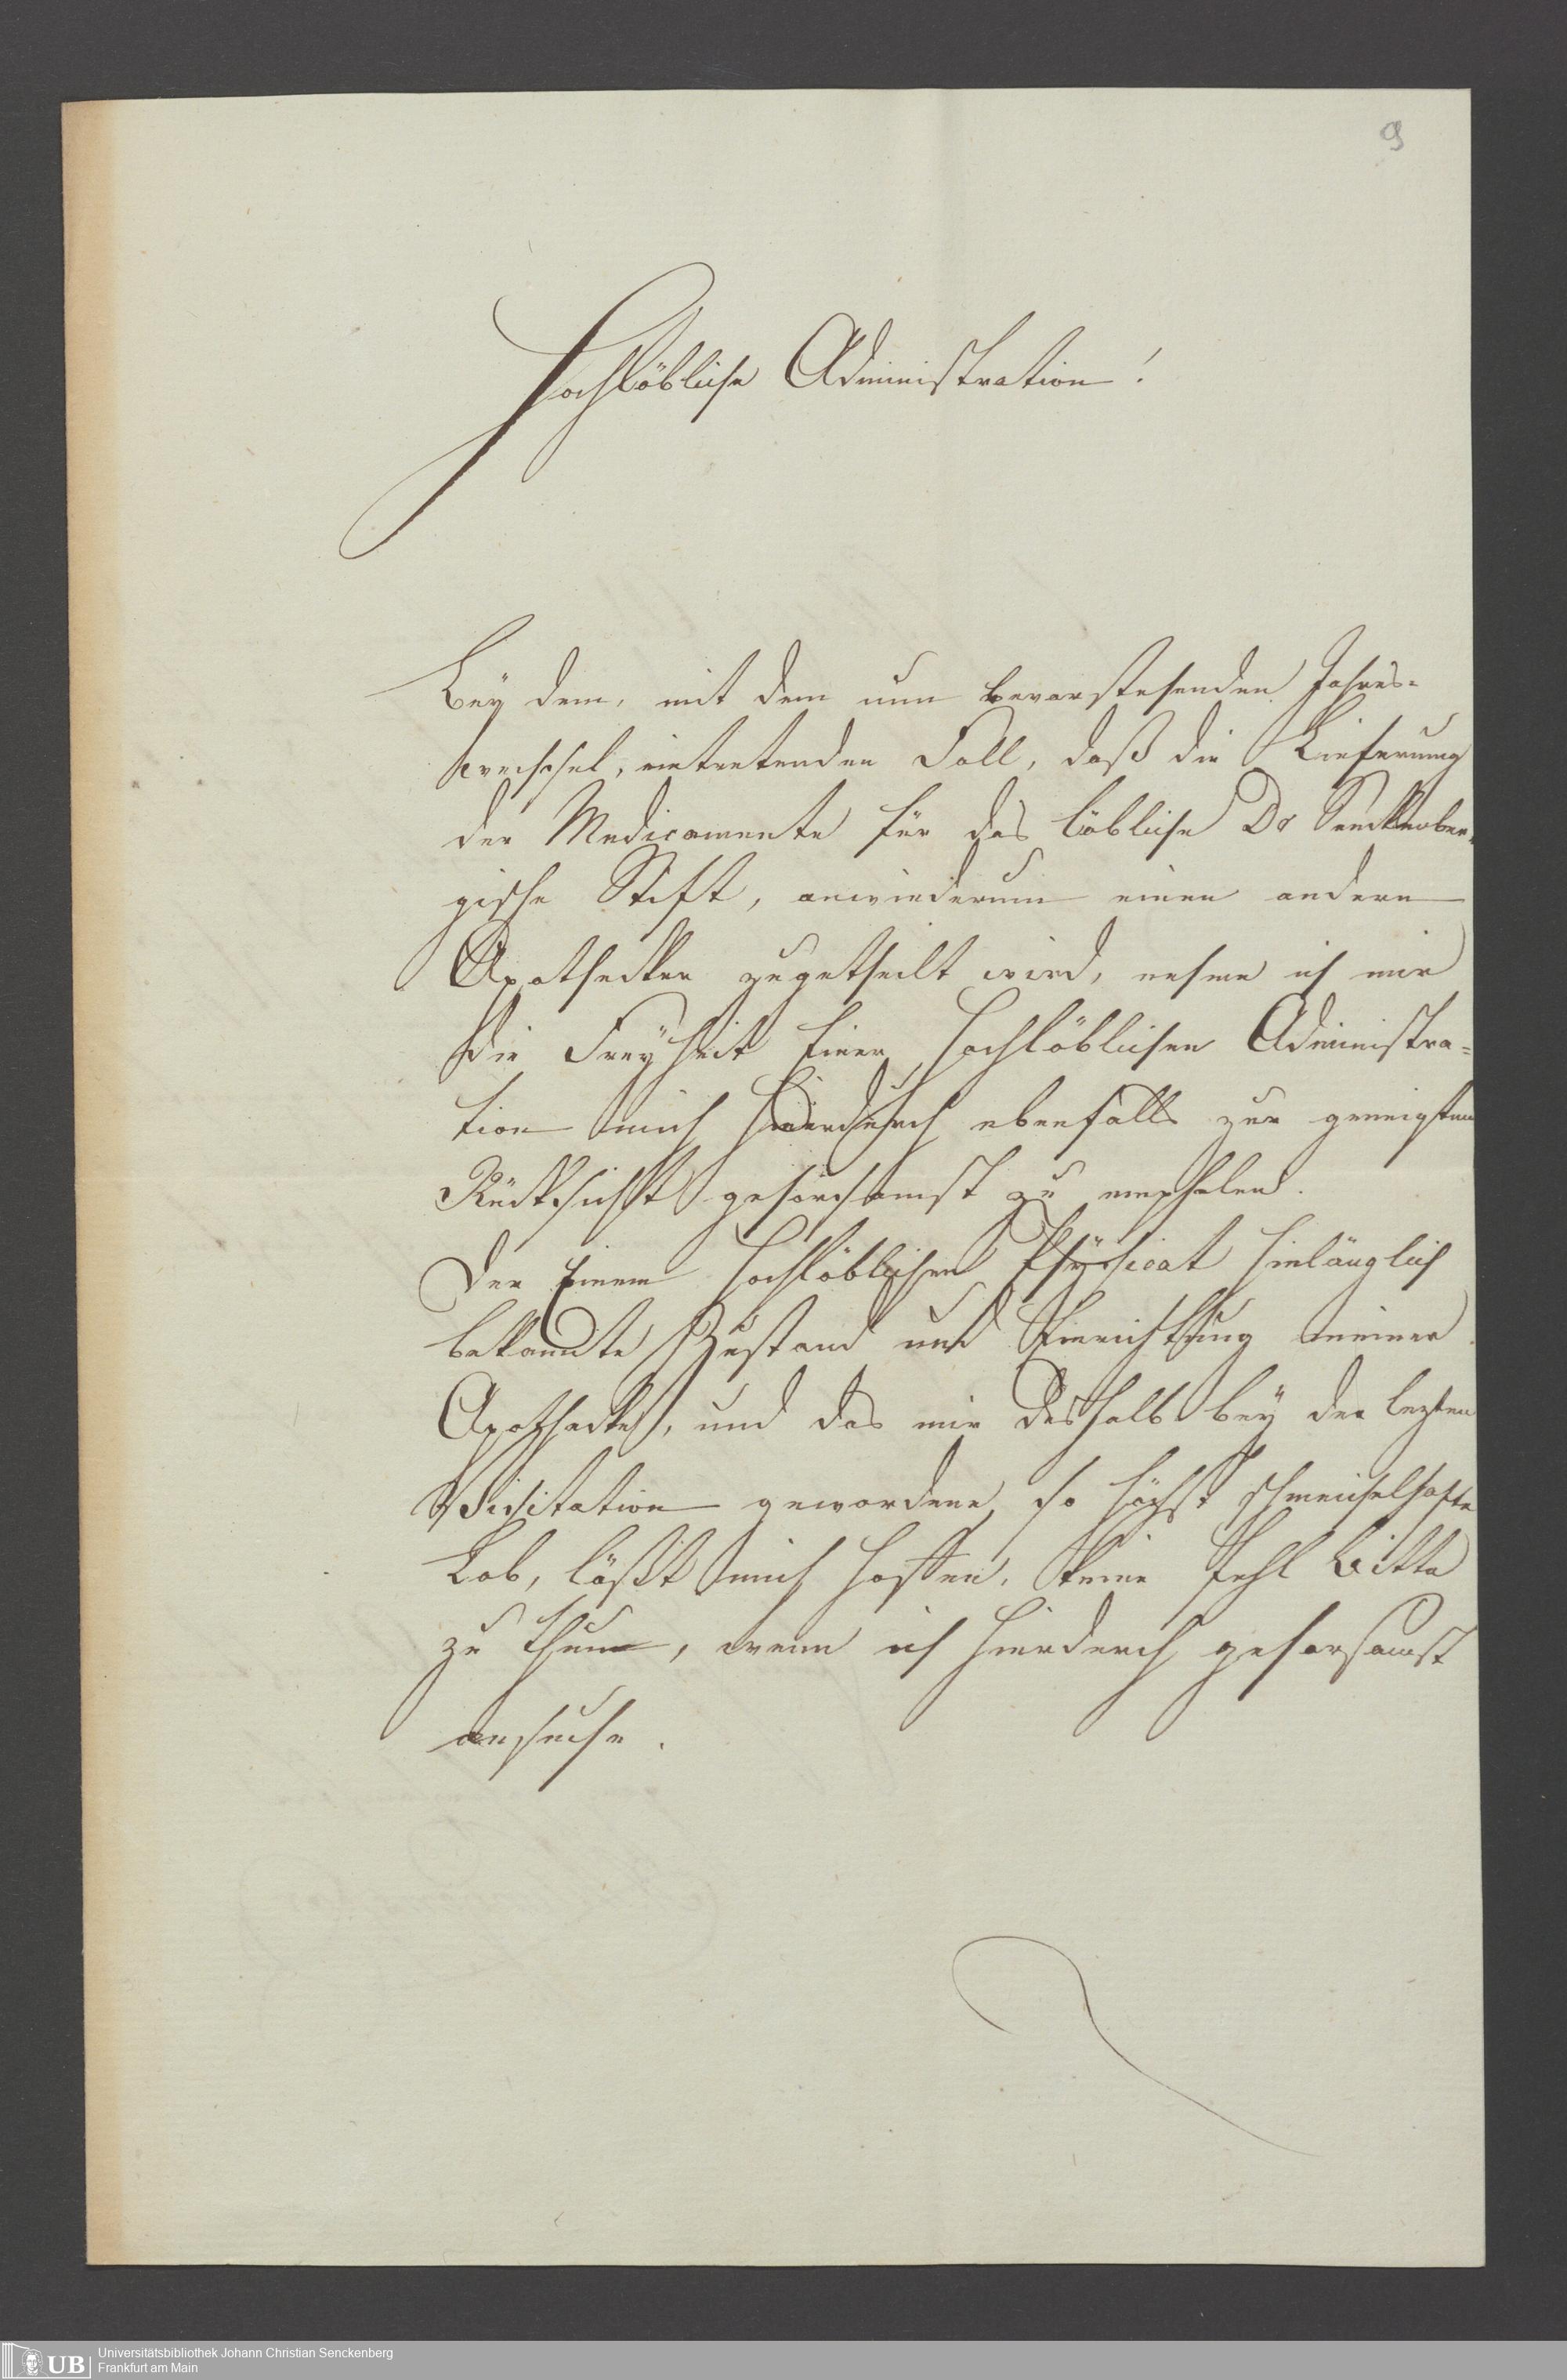 9
Hochlöbliche Administration!
Bey dem, mit dem nun bevorstehenden Jahres-
wechsel, eintretenden Fall, daß die Lieferung
der Medicamente für das löbliche Dr Senckenber-
gische Stift, anwiederum einen andern
Apothecker zugetheilt wird, nehme ich mir
die Freyheit Einer Hochlöblichen Administra=
tion mich hierdurch ebenfalls zur geneigten
Rücksicht gehorsamst zu empfehlen.
Der Einem Hochlöblichen Physicat hinlänglich
bekannte Zustand und Einrichtung meiner
Apothecke, und das mir deshalb bey der lezten
Visitation gewordene, so höchst schmeichelhafte
Lob, läßt mich hoffen, keine Fehl Bitte
zu thun, wenn ich hierdurch gehorsamst
ansuche.
UB
Universitätsbibliothek Johann Christian Senckenberg
Frankfurt am Main